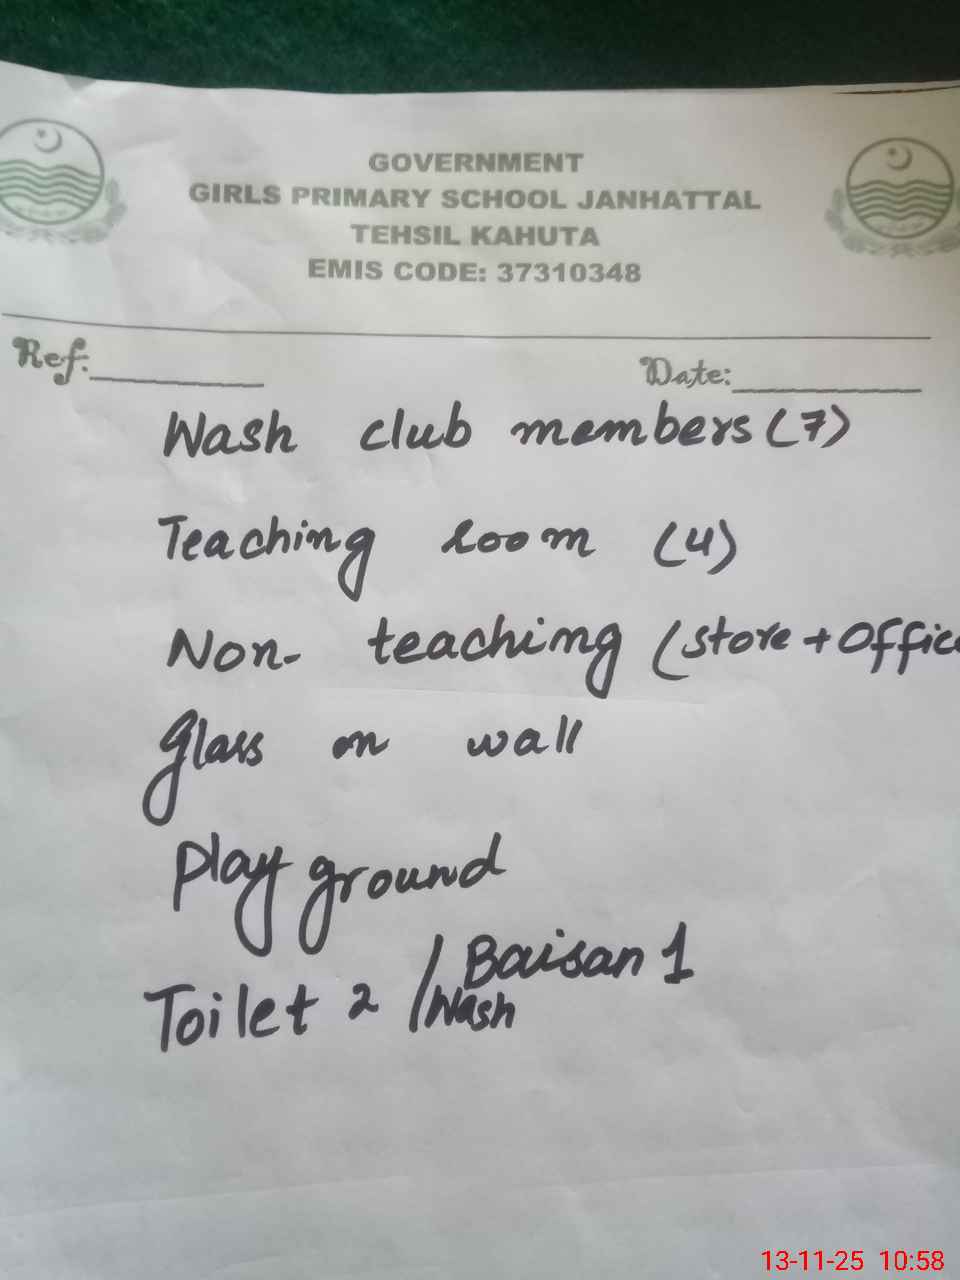 GOVERNMENT
GIRLS PRIMARY SCHOOL JANHATTAL
TEHSIL KAHUTA
EMIS CODE: 37310348
Ref: Date:
Wash club members (7)
Teaching room (4)
Non- teaching (store + Office
Glass on wall
Play ground
Toilet 2 / Baisan 1
Wash
13-11-25 10:58